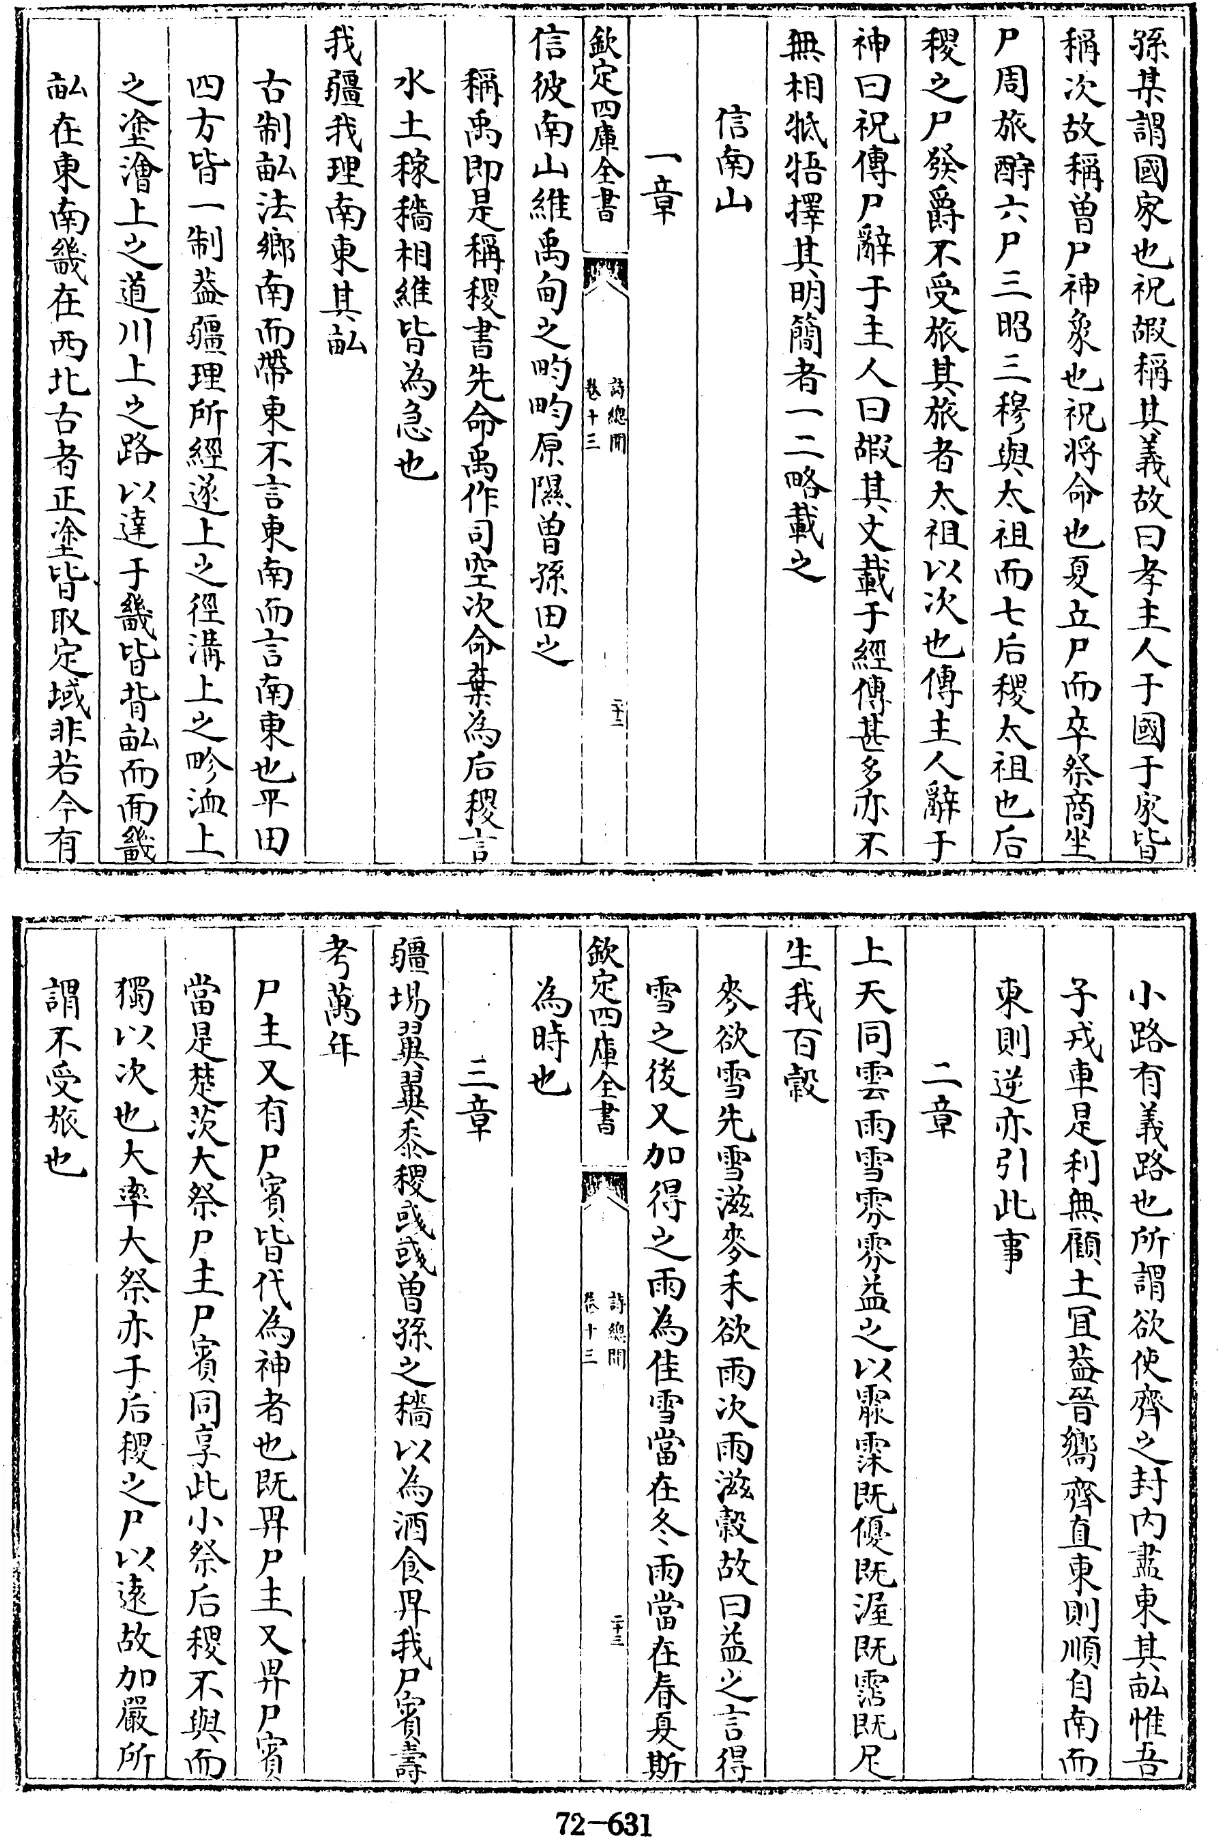 孫某謂國家也祝嘏稱其義故曰孝主人于國于家皆
稱次故稱曽尸神象也祝將命也夏立尸而卒祭商坐
尸周旅酧六尸三昭三穆與太祖而七后稷太祖也后
稷之尸發爵不受旅其旅者太祖以次也傳主人辭于
神曰祝傳尸辭于主人曰嘏其文載于經傳甚多亦不
無相牴牾擇其明簡者一二略載之
信南山
一章
欽定四庫全書
詩總聞
卷十三
二十二
信彼南山維禹甸之畇畇原隰曽孫田之
稱禹即是稱稷書先命禹作司空次命棄為后稷言
水土稼穡相維皆為急也
我疆我理南東其畝
古制畝法鄉南而帶東不言東南而言南東也平田
四方皆一制葢疆理所經遂上之徑溝上之畛洫上
之塗澮上之道川上之路以達于畿皆背畝而面畿
畝在東南畿在西北古者正塗皆取定域非若今有
小路有義路也所謂欲使齊之封内盡東其畝惟吾
子戎車是利無顧土宜葢晉嚮齊直東則順自南而
東則逆亦引此事
二章
上天同雲雨雪雰雰益之以霢霂既優既渥既霑既足
生我百穀
麥欲雪先雪滋麥禾欲雨次雨滋穀故曰益之言得
雪之後又加得之雨為佳雪當在冬雨當在春夏斯
為時也
欽定四庫全書
詩總聞
卷十三
二十三
三章
疆埸翼翼黍稷彧彧曽孫之穡以為酒食畀我尸賓壽
考萬年
尸主又有尸賓皆代為神者也既畀尸主又畀尸賓
當是楚茨大祭尸主尸賓同享此小祭后稷不與而
獨以次也大率大祭亦于后稷之尸以遠故加嚴所
謂不受旅也
72-631